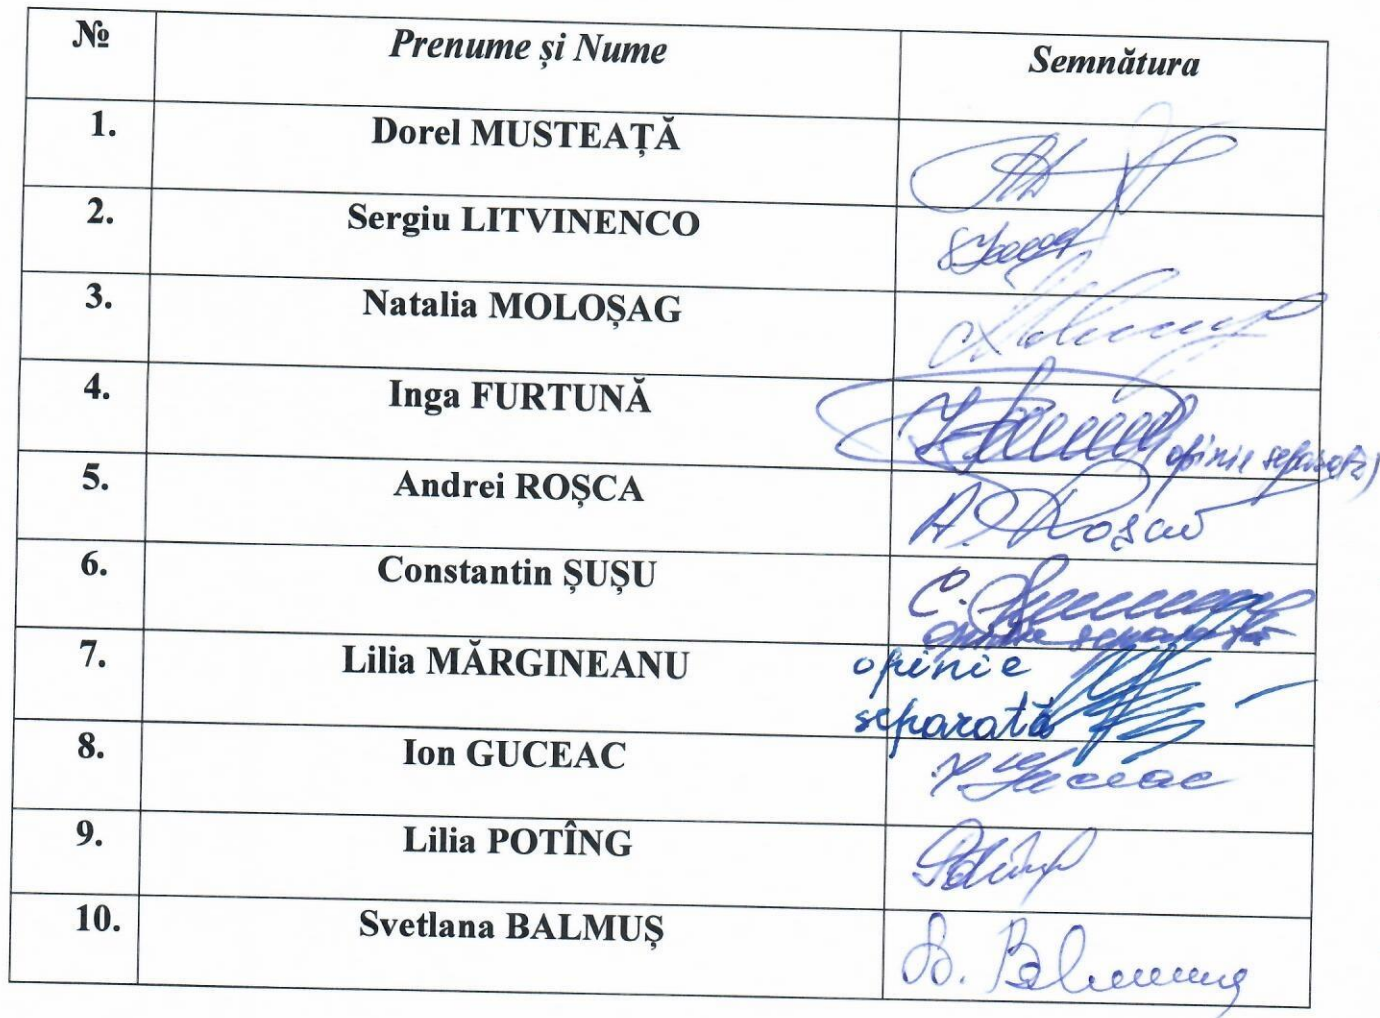 № Prenume și Nume Semnătura
1. Dorel MUSTEAȚĂ
2. Sergiu LITVINENCO
3. Natalia MOLOȘAG
4. Inga FURTUNĂ
opinie separată)
5. Andrei ROȘCA A. Roșca
6. Constantin ȘUȘU C.
opinie separată
7. Lilia MĂRGINEANU opinie
separată
8. Ion GUCEAC I. Guceac
9. Lilia POTÎNG Potîng
10. Svetlana BALMUȘ Sv. Balmuș